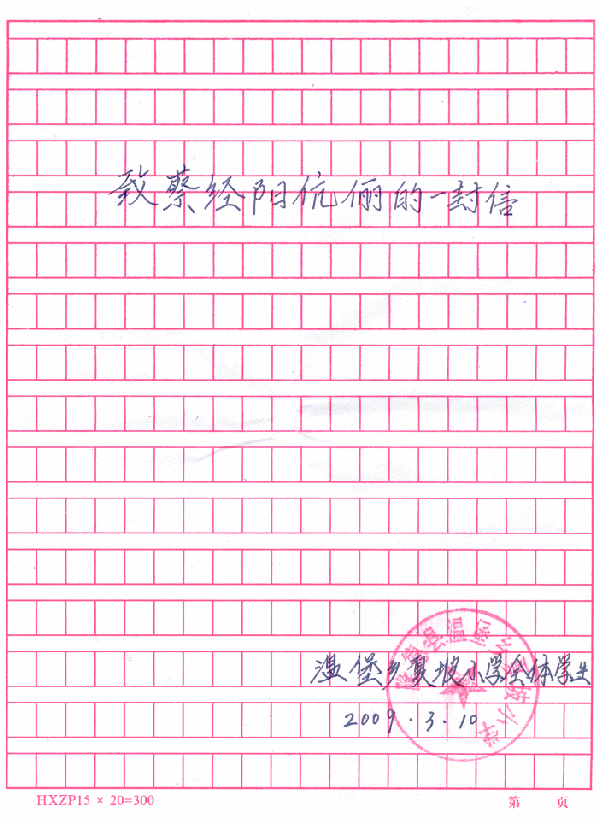 致蔡经阳伉俪的一封信
隆德县温堡乡夏坡小学
温堡乡夏坡小学全体学生
2009.3.10
HXZP15 × 20=300
第 页